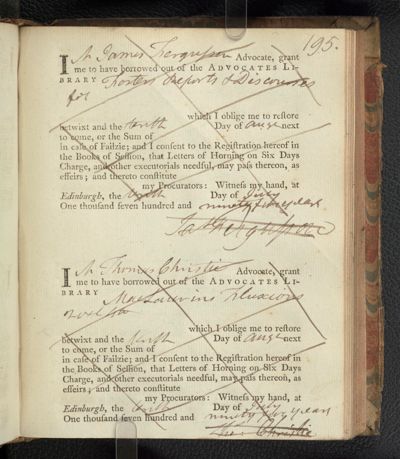 195.
I Mr James Ferguson Advocate, grant
me to have borrowed out of the ADVOCATES LI-
BRARY Fosters Reports & Discourses
fol
which I oblige me to restore
betwixt and the tenth Day of augt next
to come, or the Sum of
in case of Failzie; and I consent to the Registration hereof in
the Books of Session, that Letters of Horning on Six Days
Charge, and other executorials needful, may pass thereon, as
effeirs; and thereto constitute
my Procurators: Witness my hand, at
Edinburgh, the Day of July
One thousand seven hundred and ninety five years
Ja Ferguson
I Mr Thomas Christie Advocate, grant
me to have borrowed out of the ADVOCATES LI-
BRARY Maclaurins Fluxions
2 vol 4to
which I oblige me to restore
betwixt and the tenth Day of augt next
to come, or the Sum of
in case of Failzie; and I consent to the Registration hereof in
the Books of Session, that Letters of Horning on Six Days
Charge, and other executorials needful, may pass thereon, as
effeirs; and thereto constitute
my Procurators: Witness my hand, at
Edinburgh, the Day of July
One thousand seven hundred and ninety five years
Tho Christie